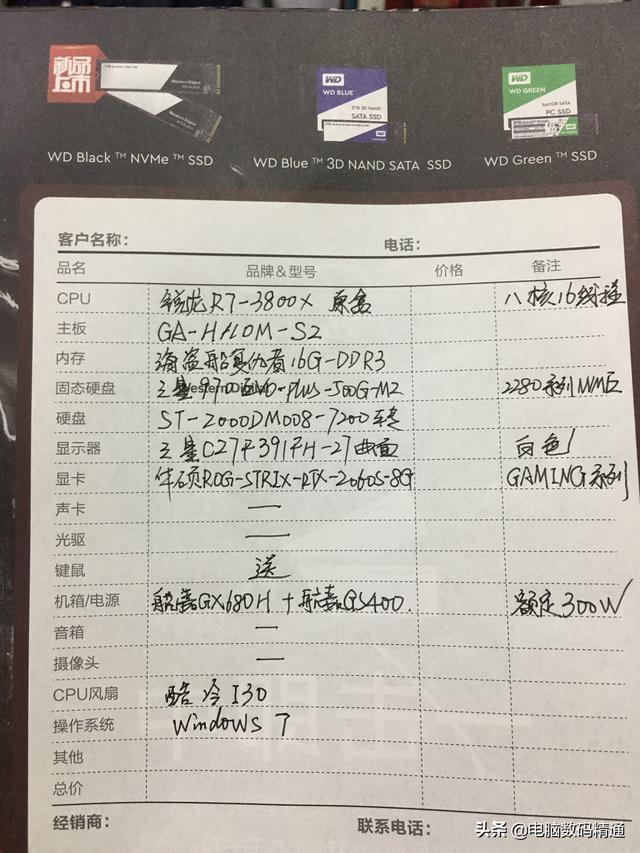 新品上市
WD Black ™ NVMe ™ SSD
WD BLUE
3D NAND
SATA SSD
WD Blue ™ 3D NAND SATA SSD
WD GREEN
SATA
PC SSD
WD Green ™ SSD
客户名称: 电话:
品名 品牌&型号 价格 备注
CPU 锐龙R7-3800X 原盒 八核16线程
主板 GA-H110M-S2
内存 海盗船复仇者16G-DDR3
固态硬盘 三星970EVO-PLUS-500G-M2 2280系列NVME
硬盘 ST-2000DM008-7200转
显示器 三星C27F391FH-27曲面 白色
显卡 华硕ROG-STRIX-RTX-2060S-8G GAMING系列
声卡 —
光驱 —
键鼠 送
机箱/电源 航嘉GX680H + 航嘉GS400. 额定300W
音箱 —
摄像头 —
CPU风扇 酷冷I30
操作系统 Windows 7
其他
总价
经销商: 联系电话:
头条 @电脑数码精通